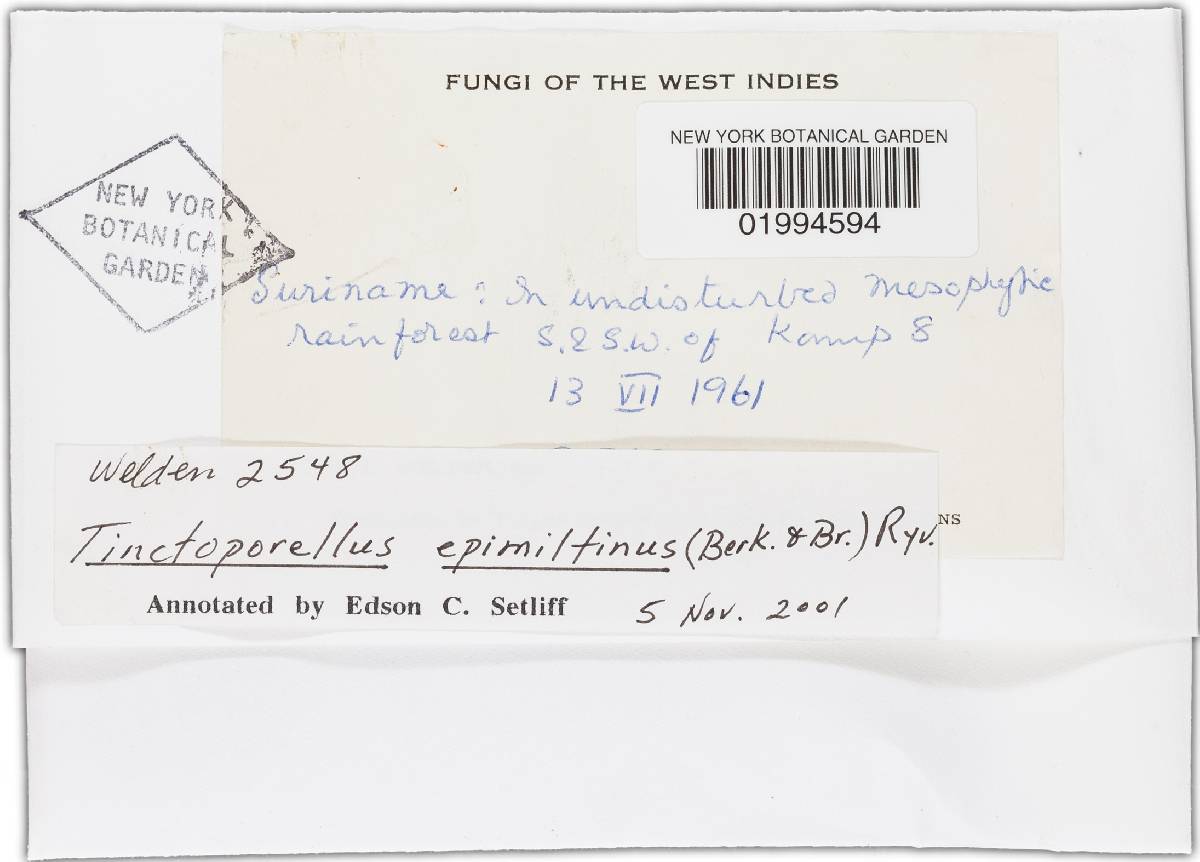 FUNGI OF THE WEST INDIES
NEW YORK BOTANICAL GARDEN
01994594
NEW YORK
BOTANICAL
GARDEN
Suriname: In undisturbed mesophytic
rainforest S. & S.W. of Kamp 8
13 VII 1961
Welden 2548
Tinctoporellus epimiltinus (Berk. & Br.) Ryv.
NS
Annotated by Edson C. Setliff 5 Nov. 2001